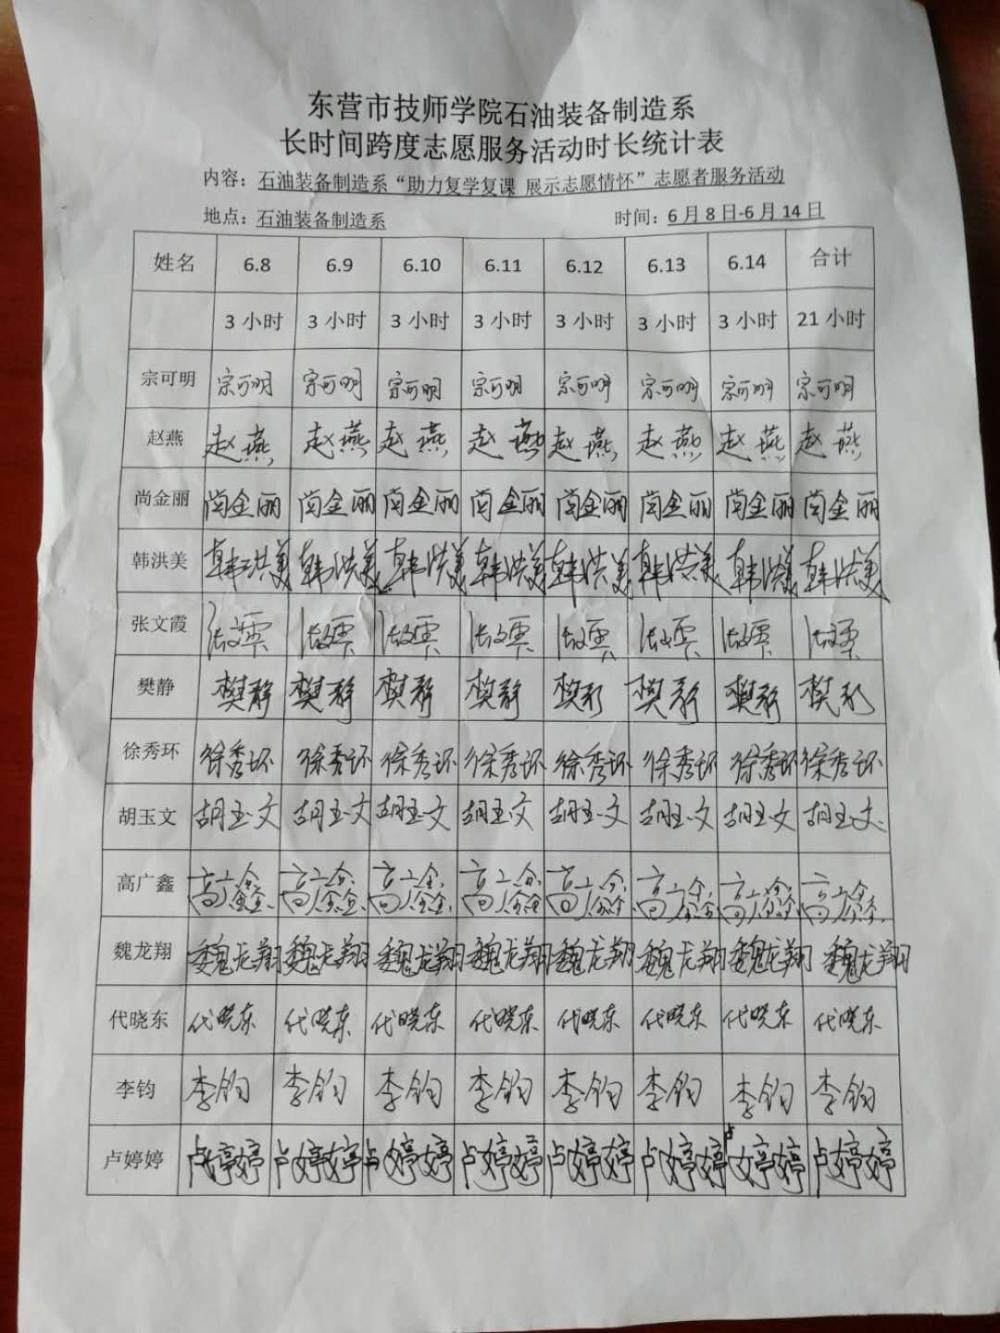 东营市技师学院石油装备制造系
长时间跨度志愿服务活动时长统计表
内容：石油装备制造系“助力复学复课 展示志愿情怀”志愿者服务活动
地点：石油装备制造系 时间：6月8日-6月14日
姓名 6.8 6.9 6.10 6.11 6.12 6.13 6.14 合计
3小时 3小时 3小时 3小时 3小时 3小时 3小时 21小时
宗可明 宗可明 宗可明 宗可明 宗可明 宗可明 宗可明 宗可明 宗可明
赵燕 赵燕 赵燕 赵燕 赵燕 赵燕 赵燕 赵燕 赵燕
尚金丽 尚金丽 尚金丽 尚金丽 尚金丽 尚金丽 尚金丽 尚金丽 尚金丽
韩洪美 韩洪美 韩洪美 韩洪美 韩洪美 韩洪美 韩洪美 韩洪美 韩洪美
张文霞 张文霞 张文霞 张文霞 张文霞 张文霞 张文霞 张文霞 张文霞
樊静 樊静 樊静 樊静 樊静 樊静 樊静 樊静 樊静
徐秀环 徐秀环 徐秀环 徐秀环 徐秀环 徐秀环 徐秀环 徐秀环 徐秀环
胡玉文 胡玉文 胡玉文 胡玉文 胡玉文 胡玉文 胡玉文 胡玉文 胡玉文
高广鑫 高广鑫 高广鑫 高广鑫 高广鑫 高广鑫 高广鑫 高广鑫 高广鑫
魏龙翔 魏龙翔 魏龙翔 魏龙翔 魏龙翔 魏龙翔 魏龙翔 魏龙翔 魏龙翔
代晓东 代晓东 代晓东 代晓东 代晓东 代晓东 代晓东 代晓东 代晓东
李钧 李钧 李钧 李钧 李钧 李钧 李钧 李钧 李钧
卢婷婷 卢婷婷 卢婷婷 卢婷婷 卢婷婷 卢婷婷 卢婷婷 卢婷婷 卢婷婷